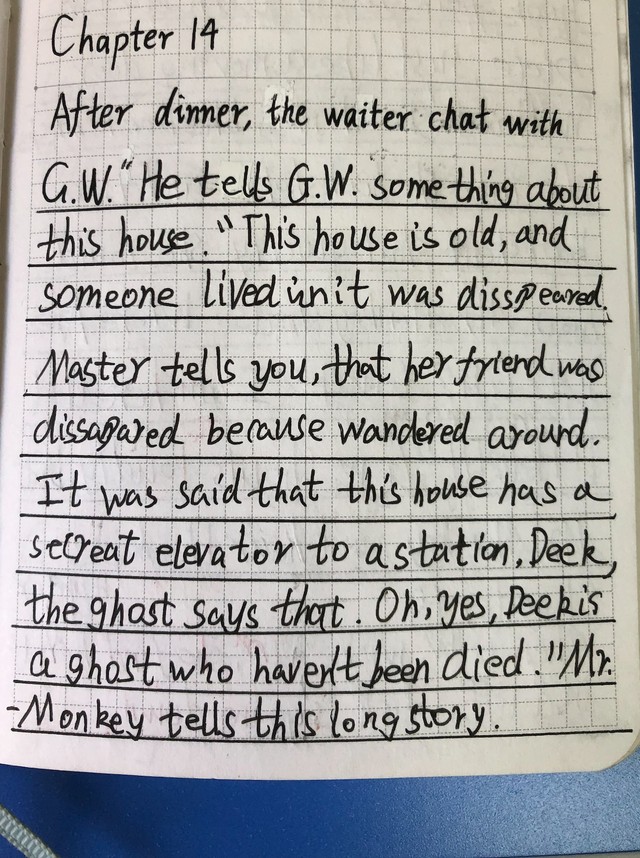 Chapter 14
After dinner, the waiter chat with
G.W." He tells G.W. something about
this house. "This house is old, and
someone lived in it was disspeared.
Master tells you, that her friend was
dissapared because wandered around.
It was said that this house has a
secreat elevator to a station, Deek,
the ghost says that. Oh, yes, Deek is
a ghost who haven't been died." Mr.
-Monkey tells this long story.